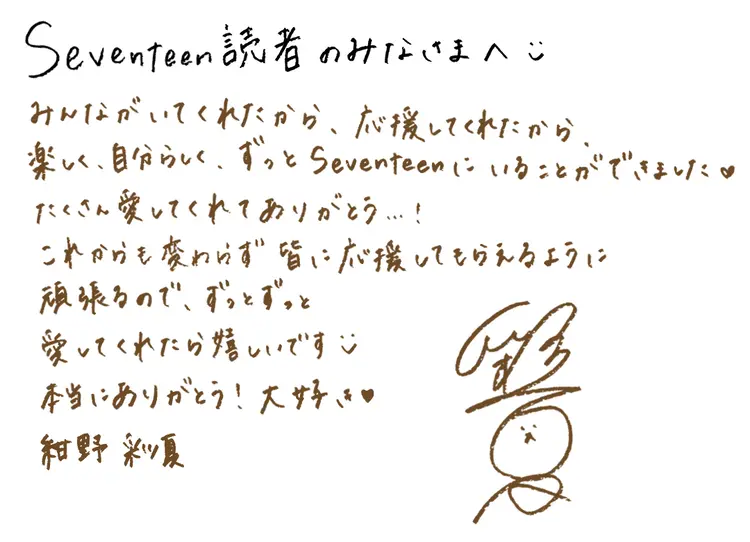 Seventeen読者のみなさまへ
みんながいてくれたから、応援してくれたから、
楽しく、自分らしく、ずっとSeventeenにいることができました♥
たくさん愛してくれてありがとう…!
これからも変わらず皆に応援してもらえるように
頑張るので、ずっとずっと
愛してくれたら嬉しいです
本当にありがとう!大好き♥
紺野 彩夏